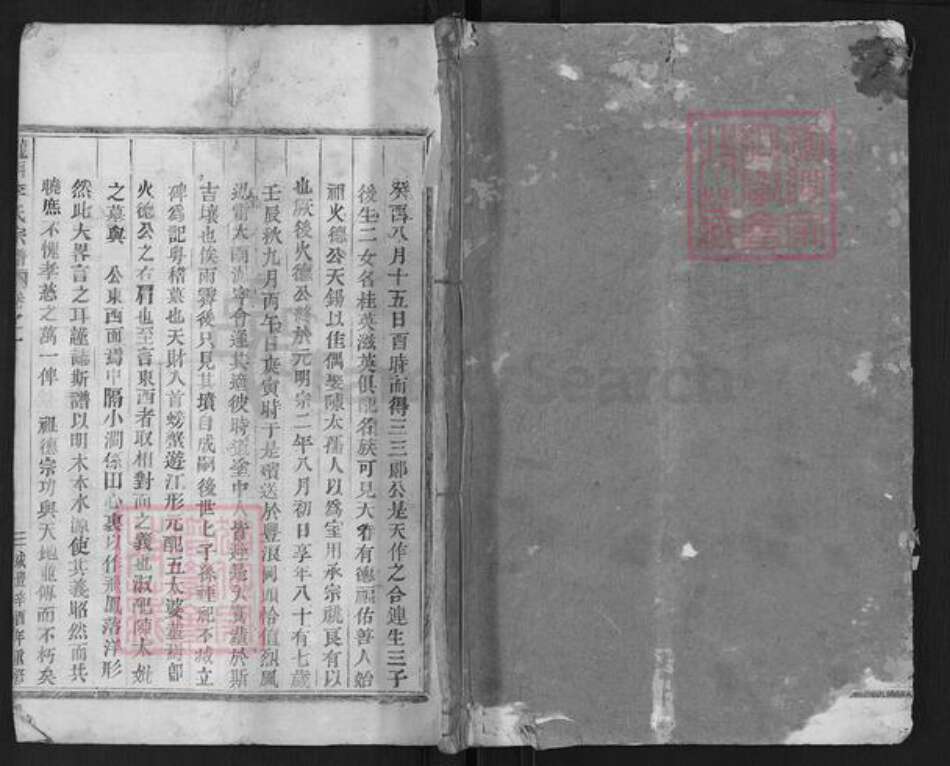 癸酉八月十五日酉時而得三三郎公是天作之合連生三子
後生二女名桂英滋英俱配名族可見大者有德福佑善人始
祖火德公天錫以佳偶娶陳太孺人以為室用承宗祧良有以
也厥後火德公終於元明宗二年八月初日享年八十有七歲
壬辰秋九月丙午日庚寅時于是殯送於豐浪岡頭恰值烈風
迅雷大雨滂 會逢其適彼時 塗中人皆 是天 於斯
吉壤也俟雨霽後只見其墳自成嗣後世七子孫 祀不 立
碑為記粵稽墓也天財入首螃蟹遊江形元配五太婆墓 即
火德公之右肩也至言東西者取相對面之義也淑配陳太妣
之墓與 公東西面焉中隔小澗係田心裏以作飛鳳落洋形
然此大畧言之耳謹誌斯譜以明木本水源使其義昭然而共
曉庶不愧孝慈之萬一俾 祖德宗功與天地並傳而不朽矣
李氏宗譜 卷之一
三 咸豐辛酉年重修